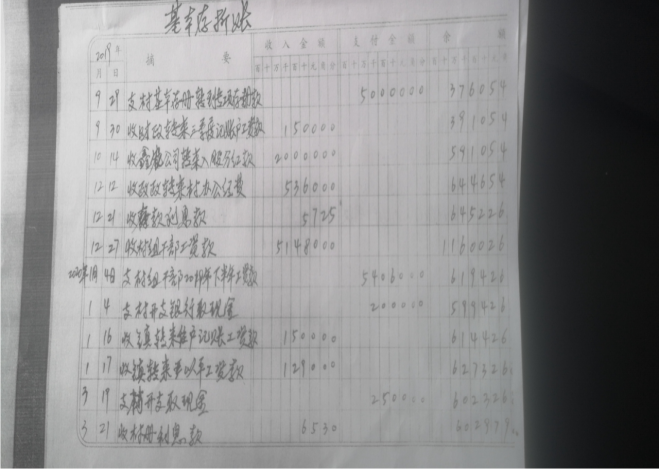 基本存折账
2019年 摘要 收入金额 支付金额 余额
月 日 百十万千百十元角分
9 29 支村基本存册转到专项存册款 5000000 376054
9 30 收财政转来三季度记账户工资款 150000 391054
12 14 收鑫 公司转来入股分红款 2000000 591054
12 12 收财政转来村办公经费 536000 644654
12 21 收存款利息款 5725 645226
12 27 收村组干部工资款 5148000 1160026
2020年1月4日 支村组干部2019年下半年工资款 5406000 619426
1 4 支村开支银行取现金 200000 599426
1 16 收镇转来账户记账工资款 150000 614426
1 17 收镇转来 工资款 129000 627326
3 19 支村开支取现金 250000 602326
3 21 收存册利息款 6530 602979